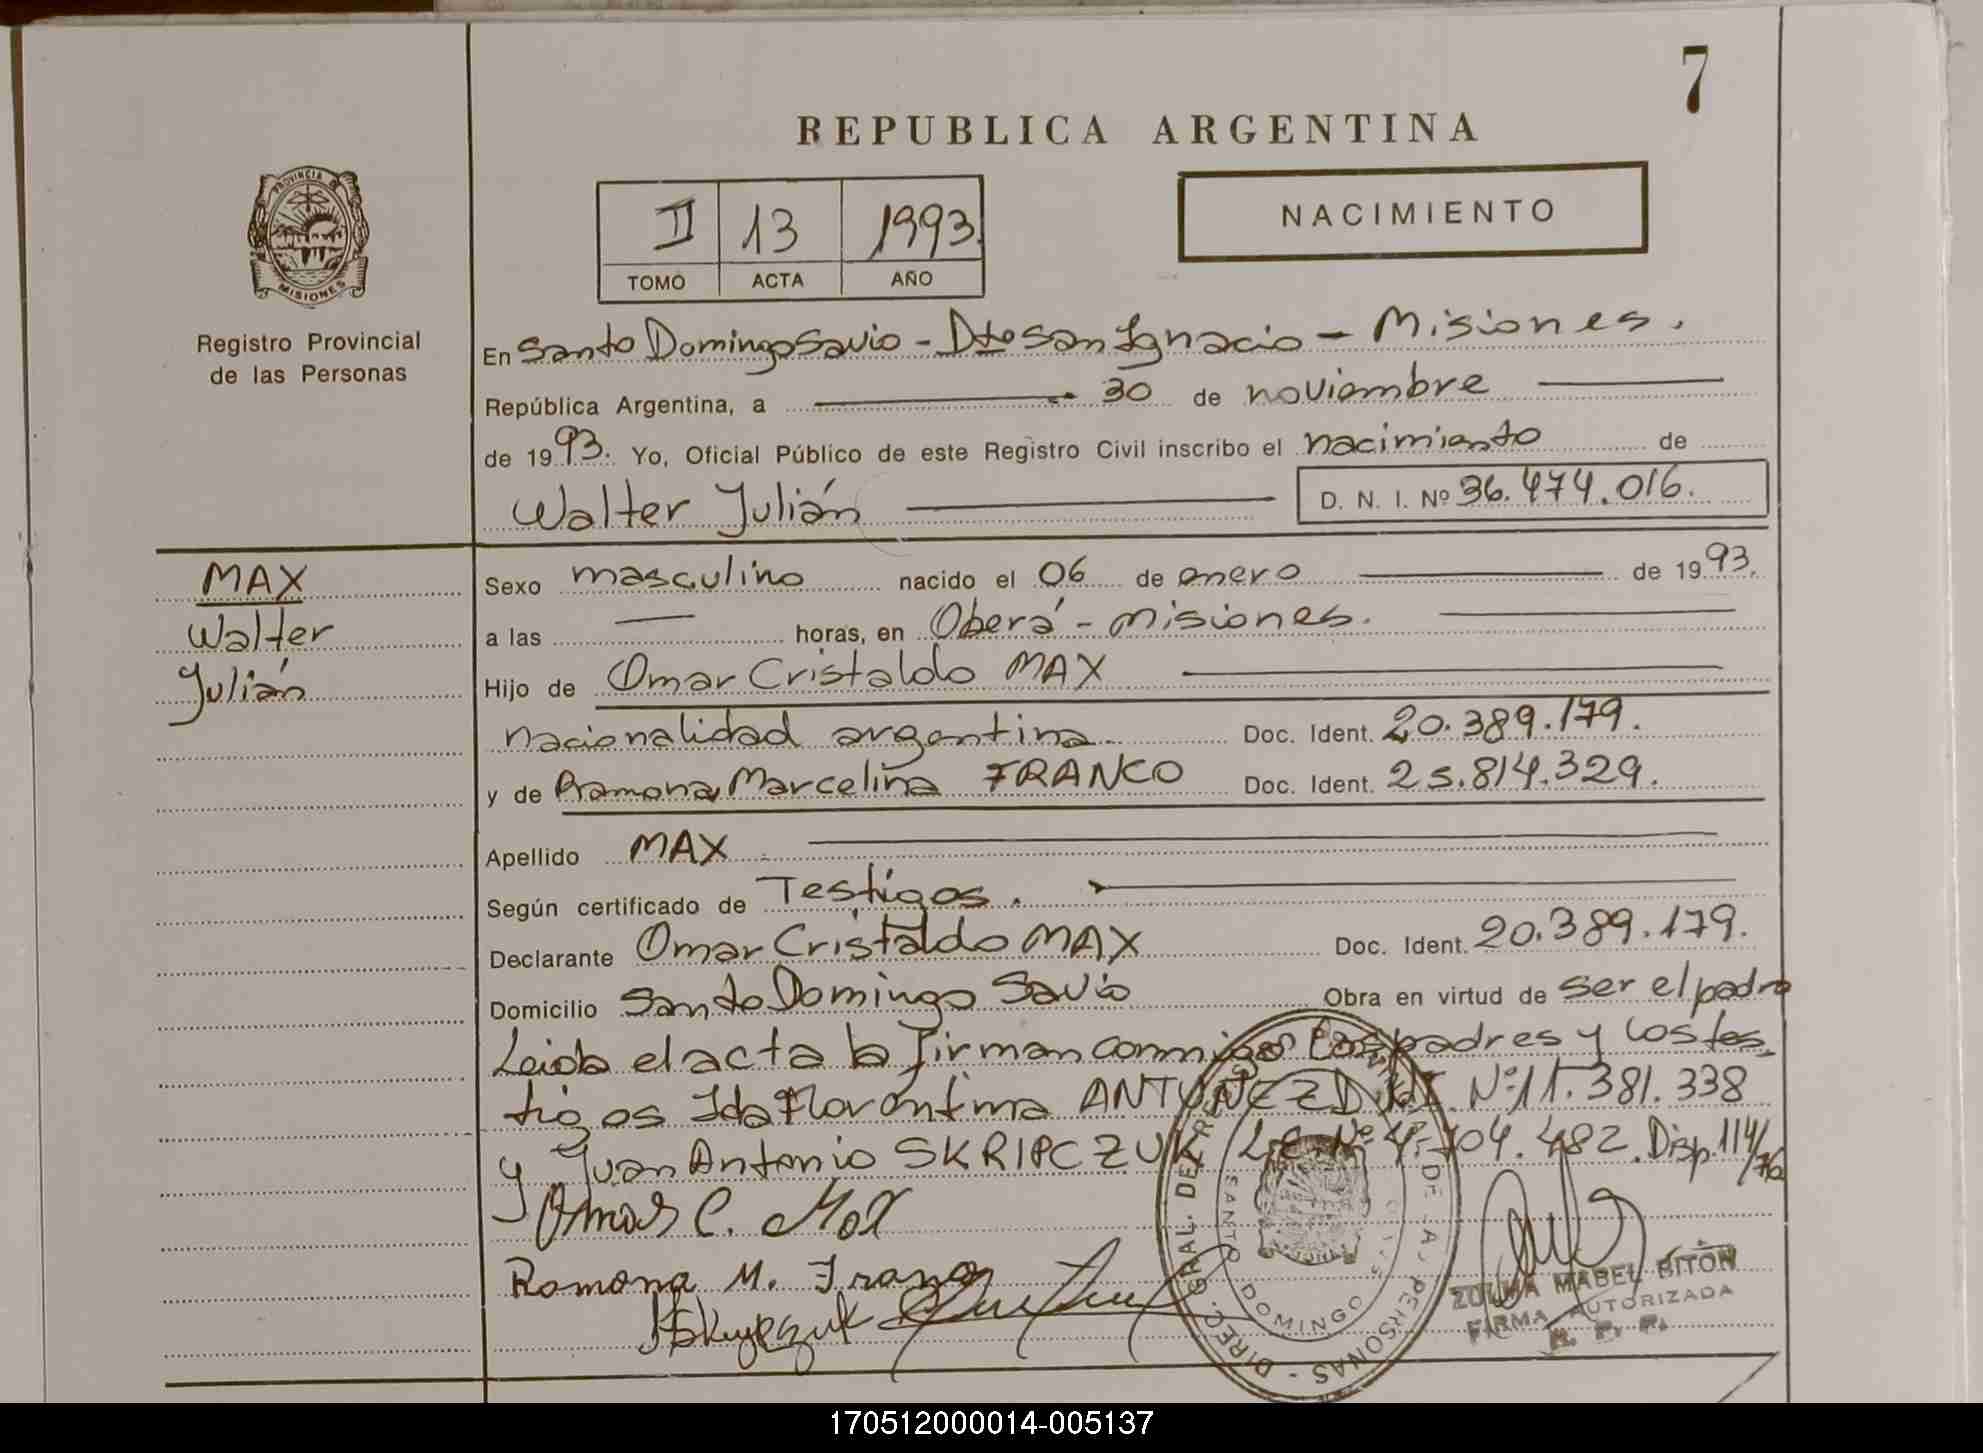 7
REPUBLICA ARGENTINA
PROVINCIA DE MISIONES
Registro Provincial
de las Personas
II 13 1993.
TOMO ACTA AÑO
NACIMIENTO
En Santo Domingo Savio - Dto San Ignacio - Misiones.
República Argentina, a 30 de noviembre
de 1993. Yo, Oficial Público de este Registro Civil inscribo el nacimiento de
Walter Julián D. N. I. Nº 36.474.016.
MAX
Walter
Julián
Sexo masculino nacido el 06 de enero de 1993.
a las — horas, en Oberá - Misiones.
Hijo de Omar Cristaldo MAX
nacionalidad argentina. Doc. Ident. 20.389.179.
y de Ramona Marcelina FRANCO Doc. Ident. 25.814.329.
Apellido MAX
Según certificado de Testigos.
Declarante Omar Cristaldo MAX Doc. Ident. 20.389.179.
Domicilio Santo Domingo Savio Obra en virtud de ser el padre
Leida el acta la firman conmigo los padres y los tes-
tigos Ida Florentina ANTUNEZ D.N.I. Nº 11.381.338
y Juan Antonio SKRIPCZUK L.E. Nº 4.704.482. Disp. 114/76
Omar C. Max
Ramona M. Franco
DIREC. GRAL. DEL REGISTRO PROVINCIAL DE LAS PERSONAS -
SANTO DOMINGO SAVIO
ZULMA MABEL BITON
FIRMA AUTORIZADA
R. P. P.
170512000014-005137